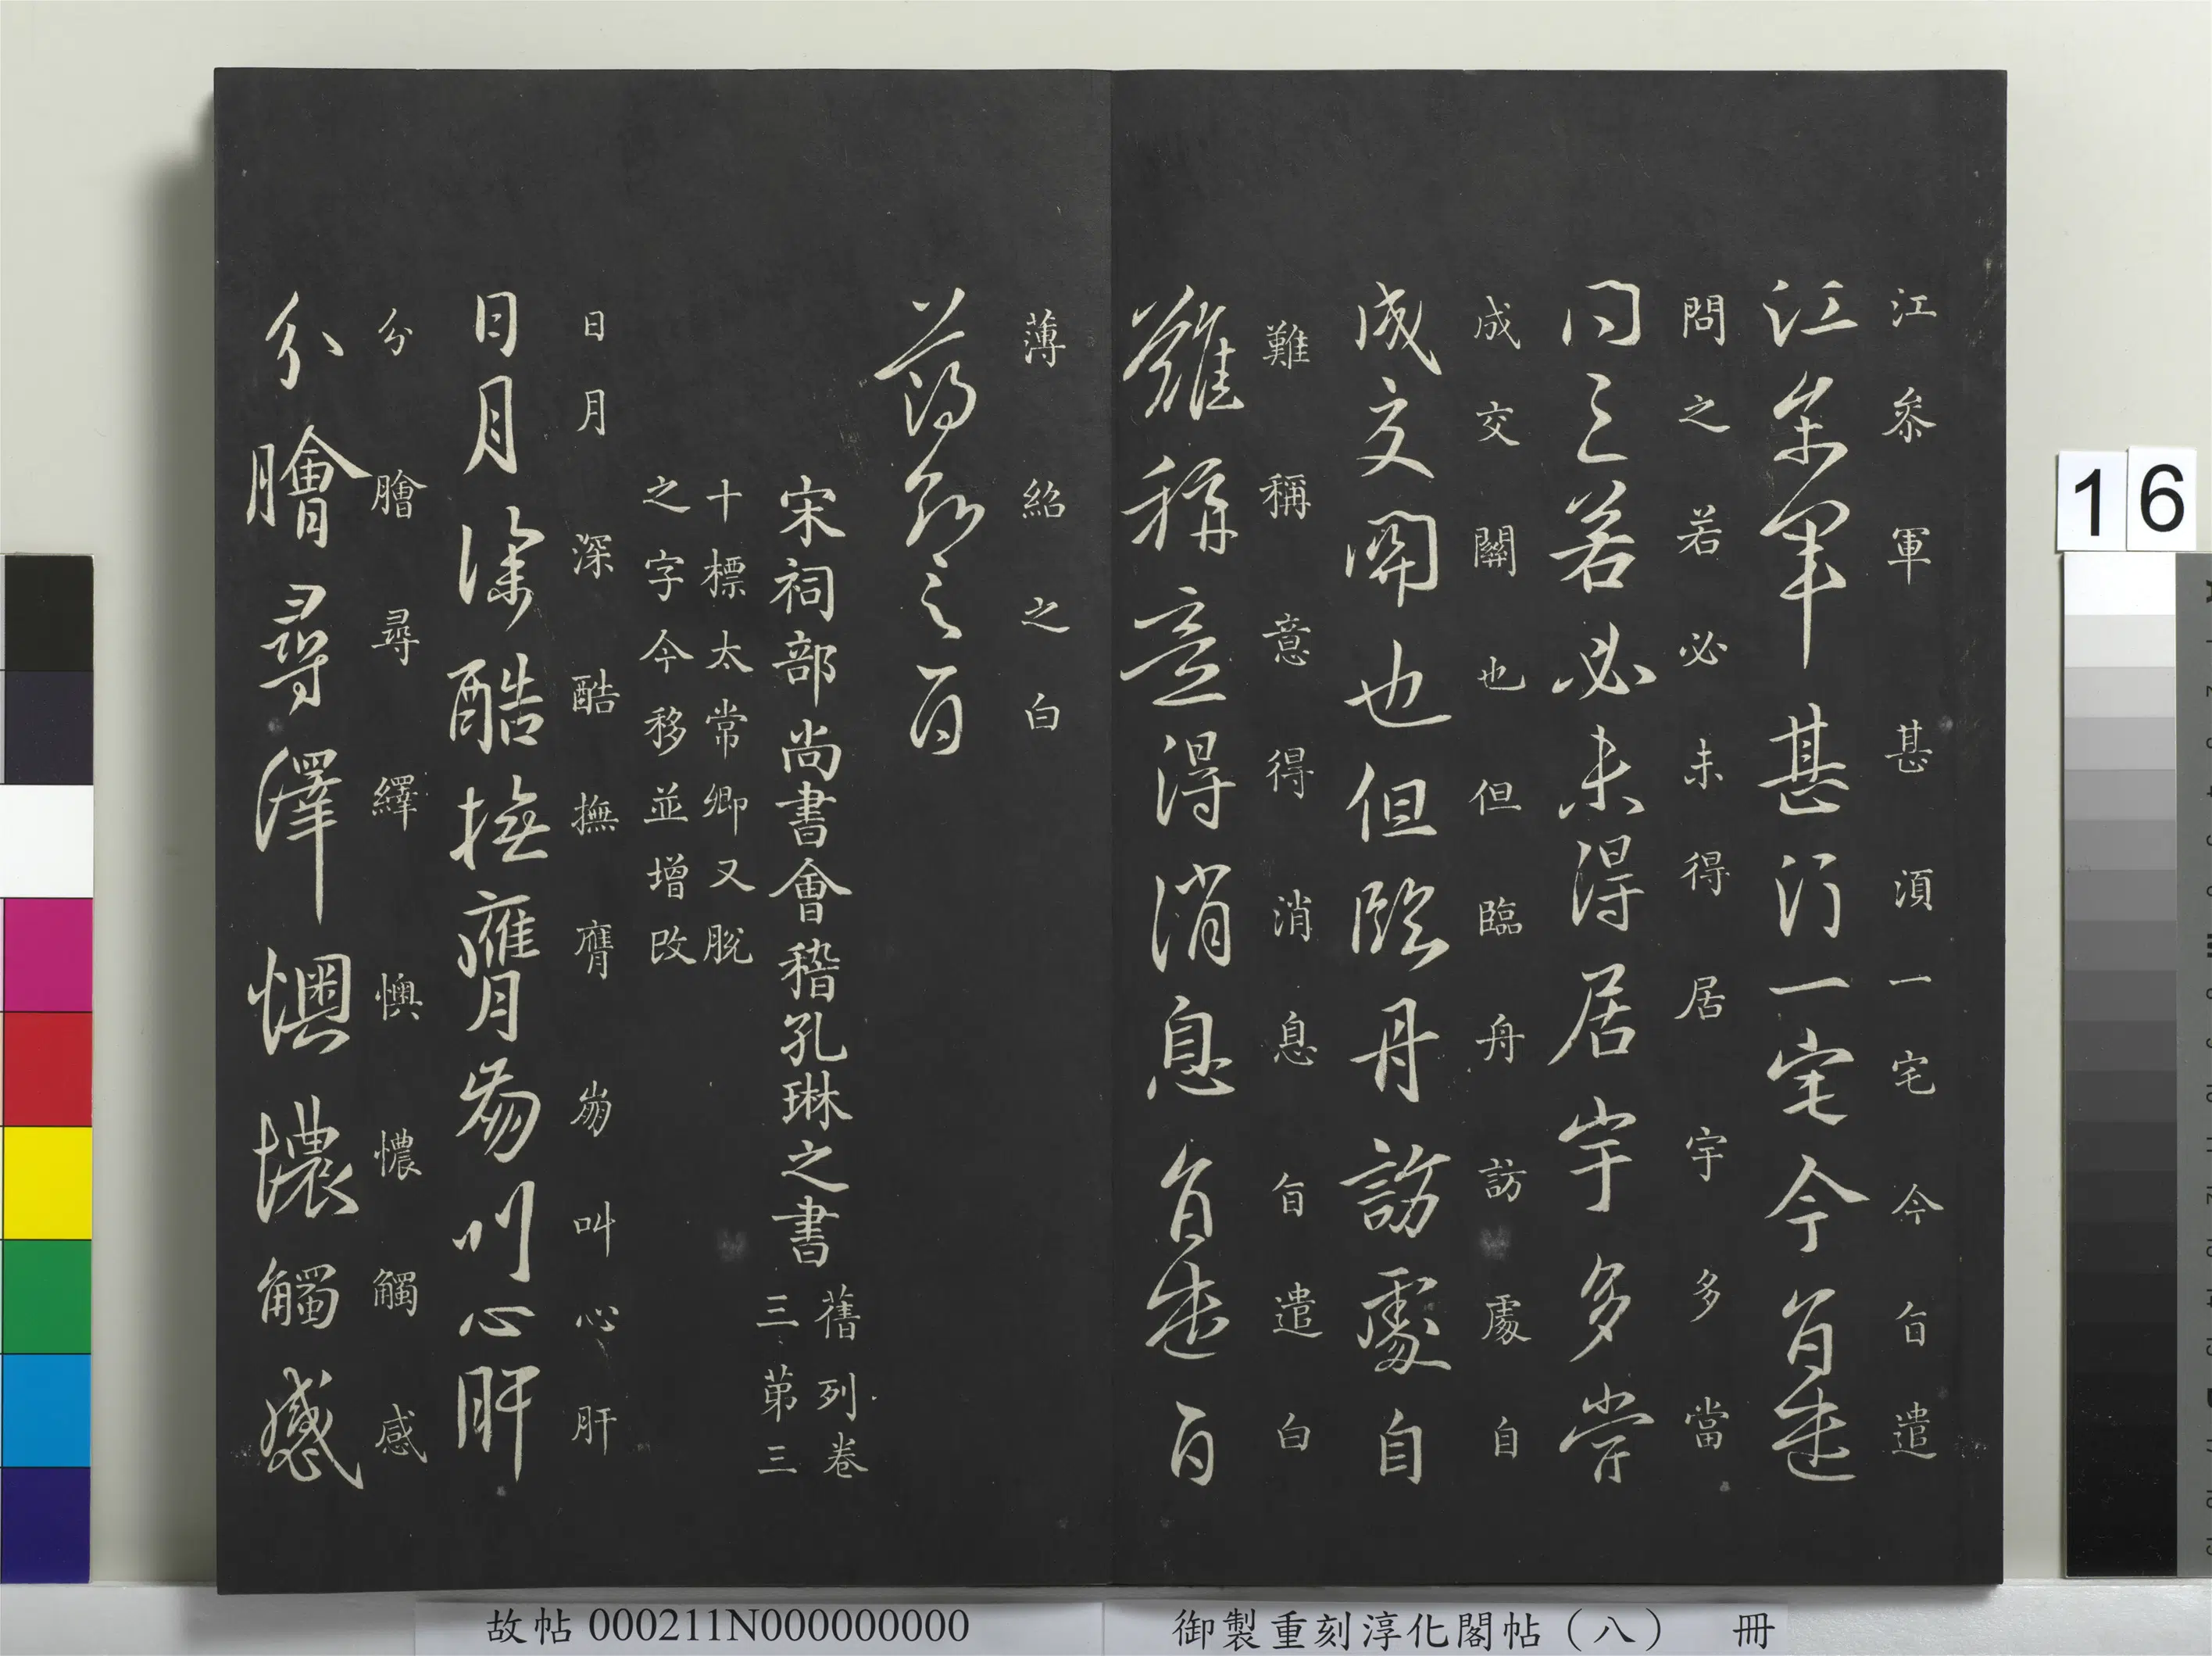 江叅軍甚須一宅今旨遣
江叅軍甚須一宅今旨遣
問之若必未得居宇多當
問之若必未得居宇多當
成交關也但臨舟訪處自
成交關也但臨舟訪處自
難稱意得消息旨遣白
難稱意得消息旨遣白
薄紹之白
薄紹之白
宋祠部尚書會稽孔琳之書
舊列卷
三第三
十標太常卿又脫
之字今移並增改
日月深酷撫膺崩叫心肝
日月深酷撫膺崩叫心肝
分膾尋繹懊憹觸感
分膾尋繹懊憹觸感
16
故帖 000211N000000000
御製重刻淳化閣帖(八) 冊